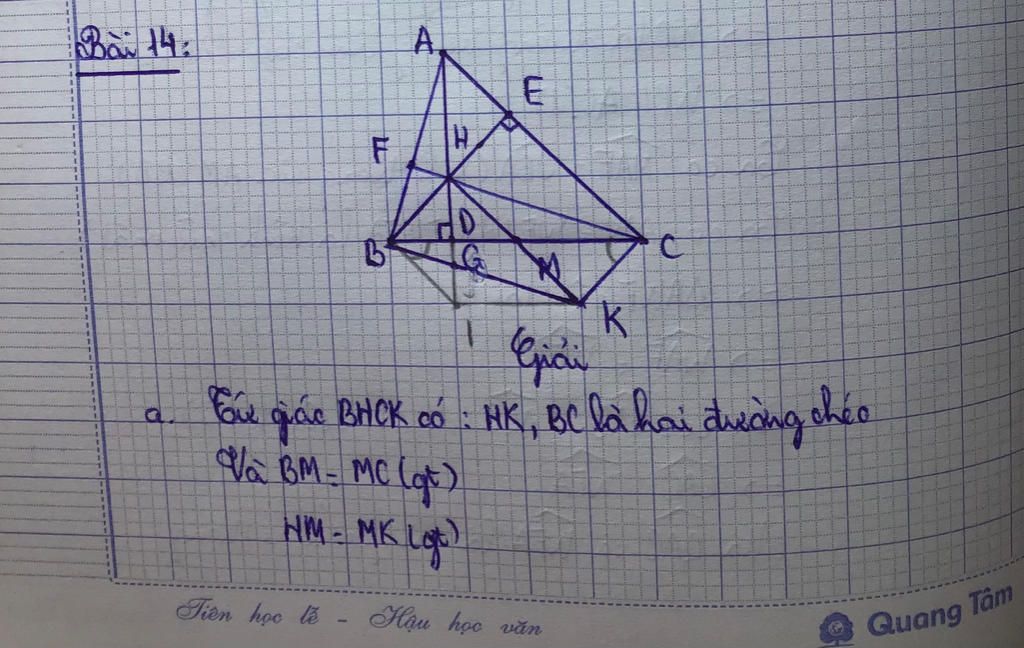 Bài 14:
A
E
H
F
D
B
C
G
M
K
I
Giải
a. Tứ giác BHCK có : HK, BC là hai đường chéo
Và BM = MC (gt)
HM = MK (gt)
Tiên học lễ - Hậu học văn
Quang Tâm